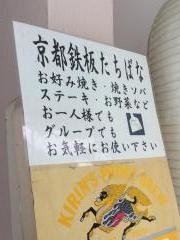 京都鉄板たちばな
お好み焼き・焼きソバ
ステーキ・お野菜など
お一人様でも
グループでも
お気軽にお使い下さい